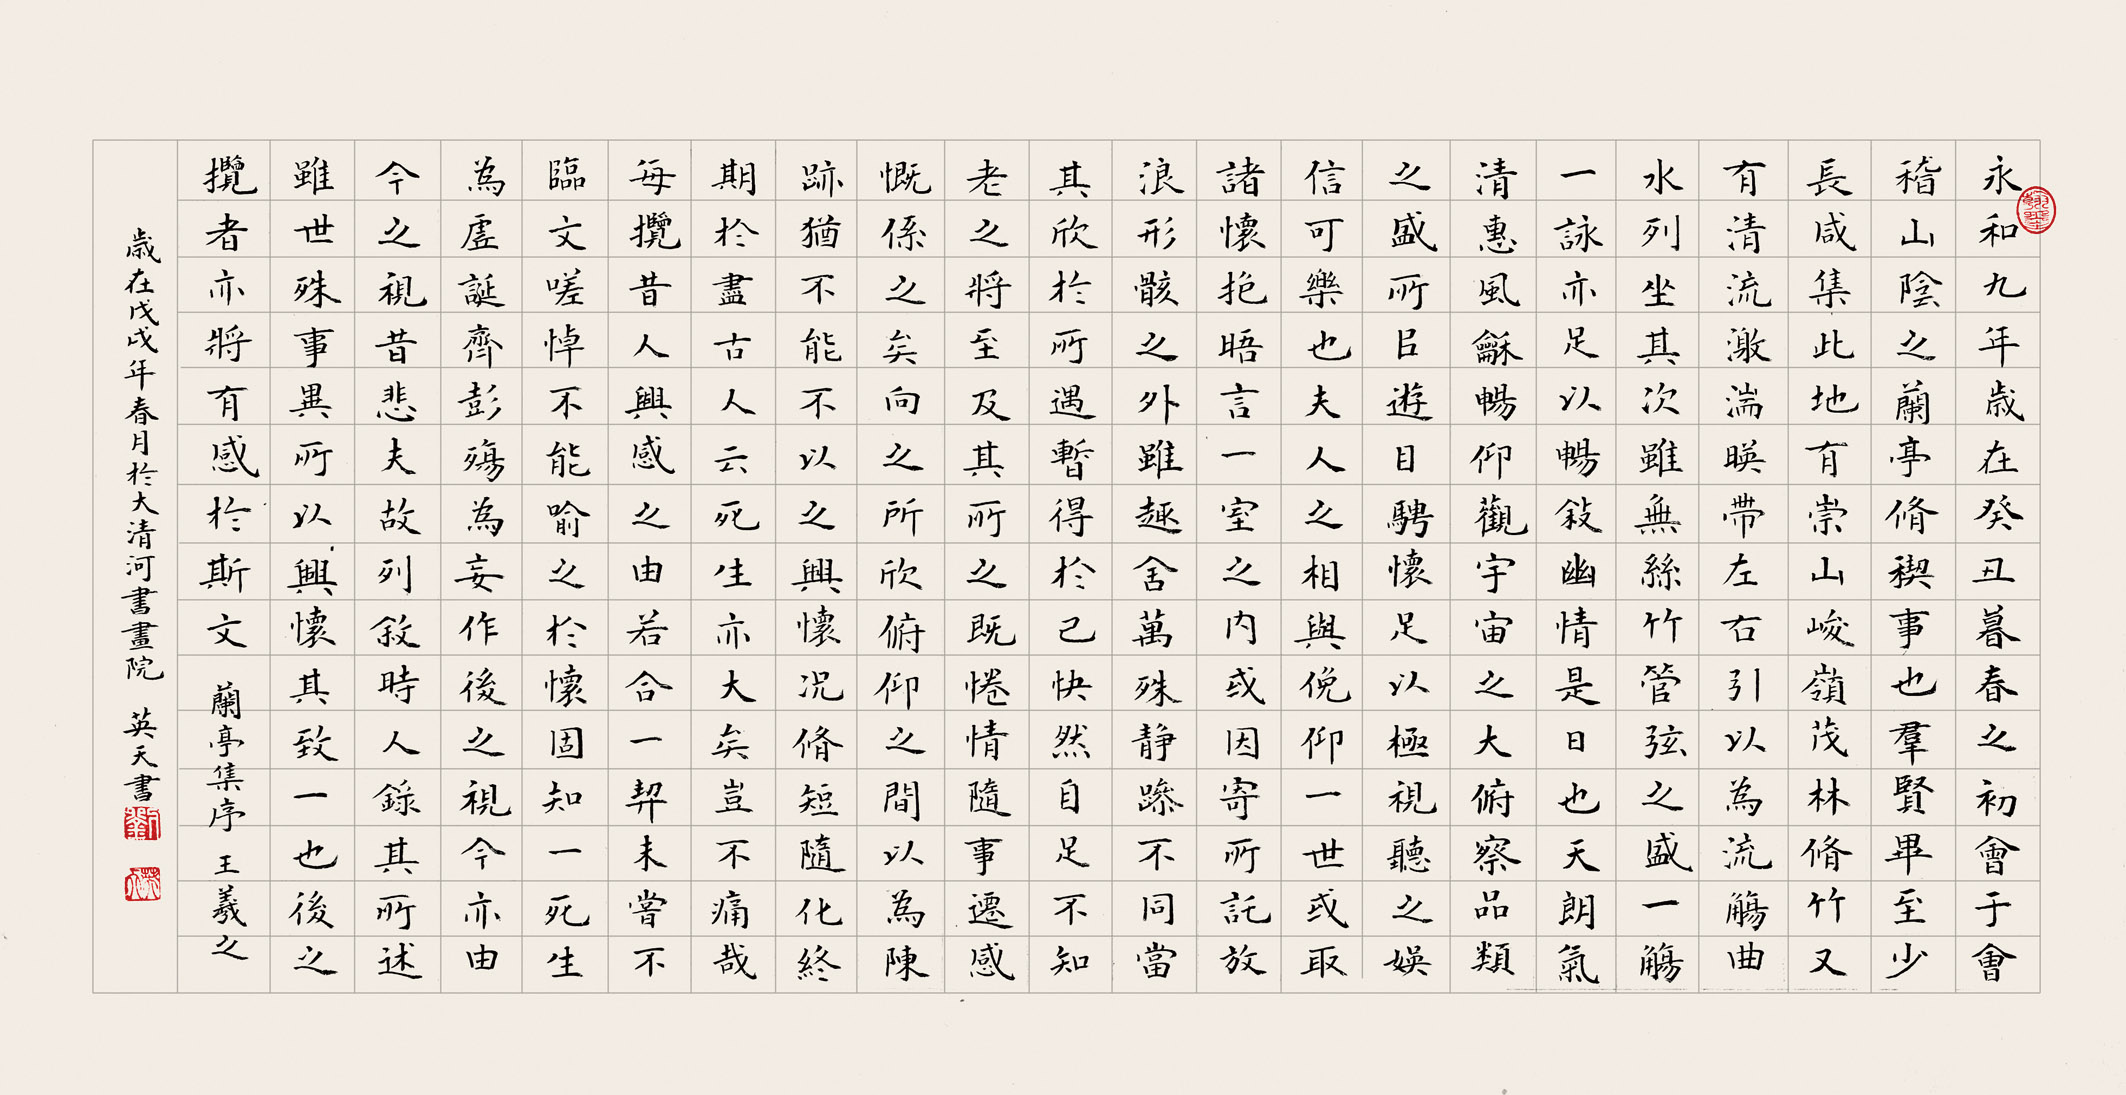 永和九年歲在癸丑暮春之初會于會
稽山陰之蘭亭脩稧事也羣賢畢至少
長咸集此地有崇山峻嶺茂林脩竹又
有清流激湍暎帶左右引以為流觴曲
水列坐其次雖無絲竹管弦之盛一觴
一詠亦足以暢敘幽情是日也天朗氣
清惠風龢暢仰觀宇宙之大俯察品類
之盛所㠯遊目騁懷足以極視聽之娛
信可樂也夫人之相與俛仰一世或取
諸懷抱晤言一室之內或因寄所託放
浪形骸之外雖趣舍萬殊静躁不同當
其欣於所遇暫得於己快然自足不知
老之將至及其所之既惓情隨事遷感
慨係之矣向之所欣俯仰之間以為陳
跡猶不能不以之興懷況脩短隨化終
期於盡古人云死生亦大矣豈不痛哉
每攬昔人興感之由若合一契未嘗不
臨文嗟悼不能喻之於懷固知一死生
為虛誕齊彭殤為妄作後之視今亦由
今之視昔悲夫故列敘時人錄其所述
雖世殊事異所以興懷其致一也後之
攬者亦將有感於斯文 蘭亭集序 王羲之
歲在戊戌年春月於大清河書畫院 英天書